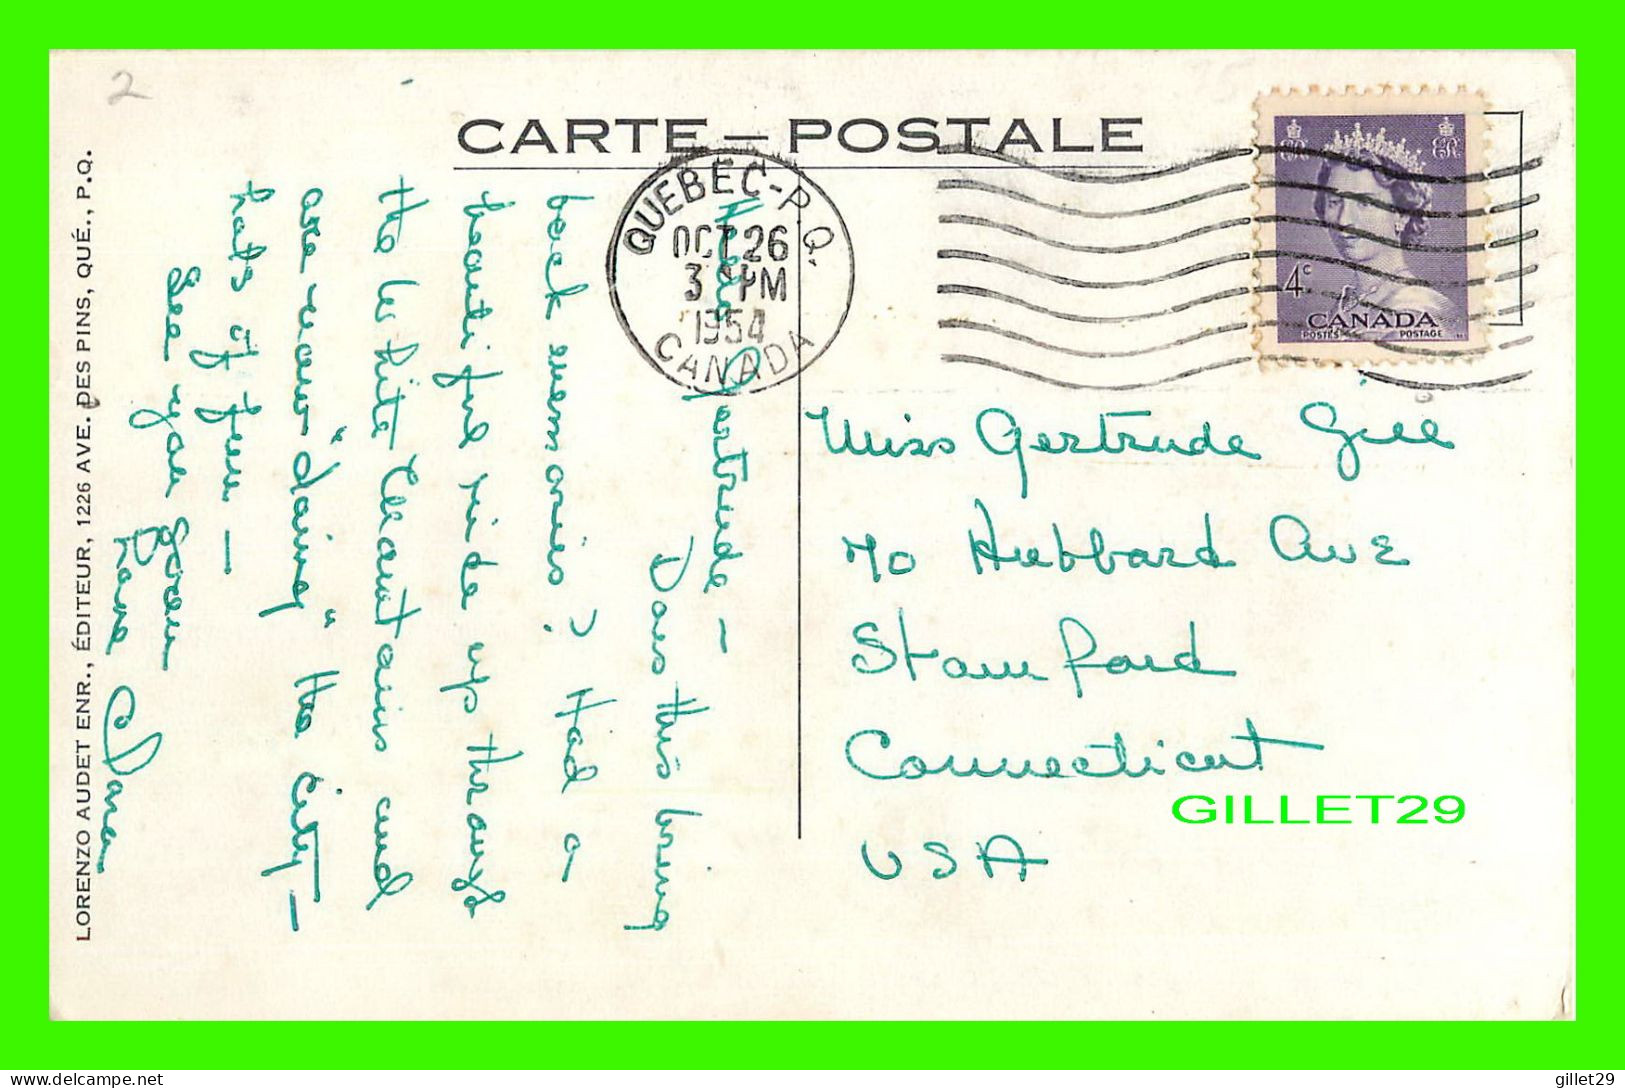 2
CARTE – POSTALE
QUEBEC-P.Q.
OCT 26
3 PM
1954
CANADA
4c
CANADA
POSTES POSTAGE
Gertrude –
Does this bring
back memories? Had a
beautiful ride up through
the White Mountains and
are now "doing" the city –
hats of fun –
See you soon
Love
Miss Gertrude Gill
70 Hubbard Ave
Stamford
Connecticut
USA
LORENZO AUDET ENR., ÉDITEUR, 1226 AVE. DES PINS, QUÉ., P.Q.
GILLET29
gillet29
delcampe.net